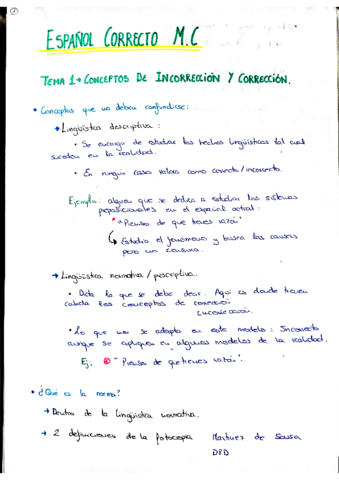 ESPAÑOL CORRECTO M.C
TEMA 1 → CONCEPTOS DE INCORRECCIÓN Y CORRECCIÓN.
• Conceptos que no deben confundirse:
→ Lingüística descriptiva:
• Se encarga de estudiar los hechos lingüísticos tal cual
suceden en la realidad.
• En ningún caso valora como correcto/incorrecto.
Ejemplo: alguien que se dedica a estudiar los sistemas
preposicionales en el español actual:
"Pienso de que tienes razón"
↳ Estudia el fenómeno y busca las causas
pero no censura.
→ Lingüística normativa / prescriptiva.
• Dicta lo que se debe decir. Aquí es donde tienen
cabida los conceptos de corrección
incorrección.
• Lo que no se adapta en este modelo: Incorrecto
aunque se aplique en algunos modelos de la realidad.
Ej. "Pienso de que tienes razón".
• ¿Qué es la norma?
→ Dentro de la lingüística normativa.
→ 2 definiciones de la fotocopia Martínez de Sousa
DPD